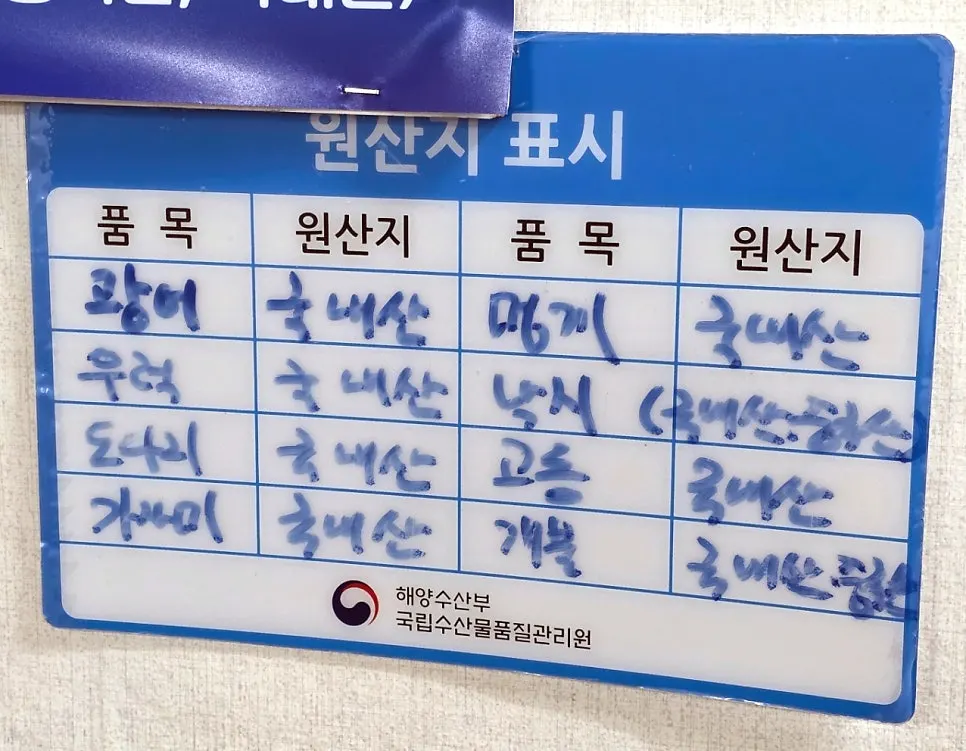 원산지 표시
품 목 원산지 품 목 원산지
광어 국내산 멍게 국내산
우럭 국내산 낙지 (국내산·중국산
도다리 국내산 고등 국내산
가자미 국내산 개불 국내산
해양수산부
국립수산물품질관리원